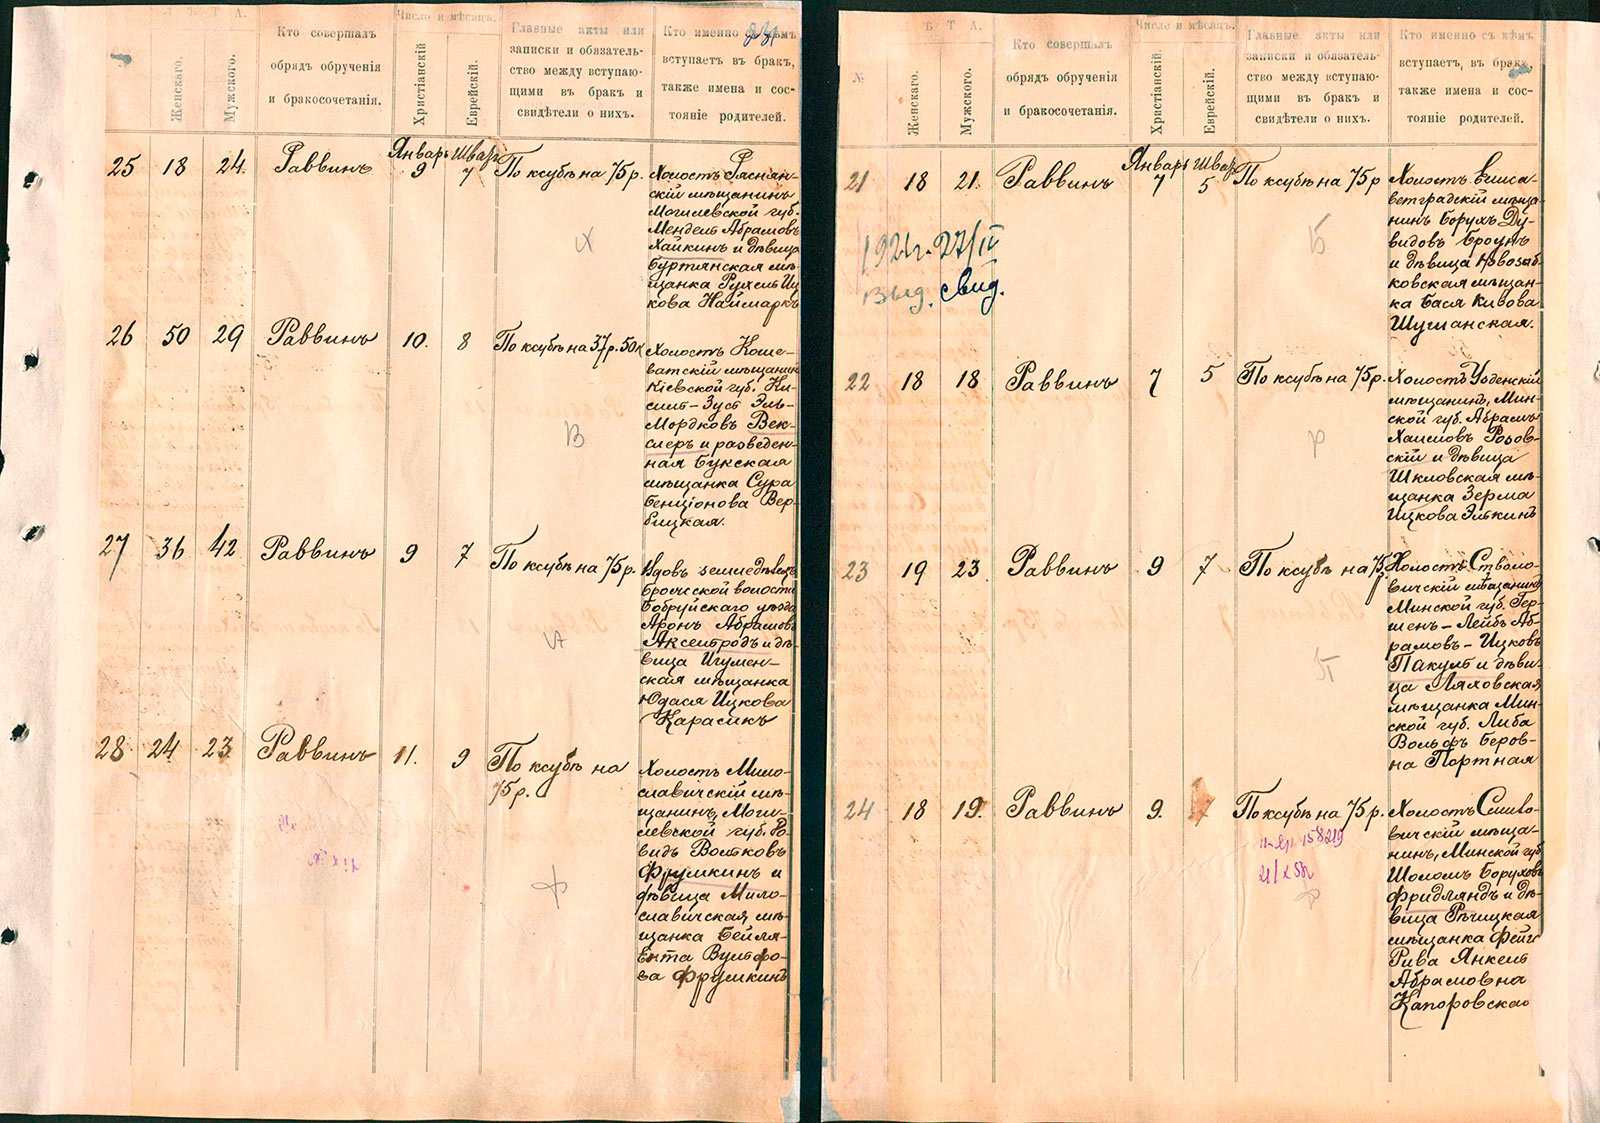 Б Т А.
Число и мѣсяцъ.
Женскаго.
Мужского.
Кто совершалъ
обрядъ обрученія
и бракосочетанія.
Христіанскій
Еврейскій.
Главные акты или
записки и обязатель-
ство между вступаю-
щими въ бракъ и
свидѣтели о нихъ.
Кто именно съ кѣмъ
вступаетъ въ бракъ,
также имена и сос-
тояніе родителей.
25 18 24. Раввинъ
Январь Шватъ
9 7
По ксубѣ на 75 р.
Холостъ Ряснян-
скій мѣщанинъ
Могилевской губ.
Мендель Абрамовъ
Хайкинъ и дѣвица
Буртянская мѣ-
щанка Рухель Иц
кова Наймаркъ
Х
26 50 29 Раввинъ 10. 8 По ксубѣ на 37 р. 50 к
Холостъ Коше-
ватскій мѣщанин
Кіевской губ. Ки-
силь-Зусъ Эль-
Мордковъ Век-
слеръ и разведен-
ная Букская
мѣщанка Сура
Бенціонова Вер-
бицкая.
В
27 36 42 Раввинъ 9 7 По ксубѣ на 75 р.
Вдовъ земледѣлецъ
Брожской волости
Бобруйскаго уѣзда
Аронъ Абрамовъ
Аксельродъ и дѣ-
вица Игумен-
ская мѣщанка
Юдася Ицкова
Карасикъ
А
28 24 23 Раввинъ 11. 9 По ксубѣ на
75 р.
Холостъ Мило-
славичскій мѣ-
щанинъ, Моги-
левской губ. До-
видъ Волтковъ
Фрумкинъ и
дѣвица Мило-
славичская мѣ-
щанка Бейля-
Ента Вульфо-
ва Фрумкинъ
ф
№
Б Т А.
Число и мѣсяцъ.
Женскаго.
Мужского.
Кто совершалъ
обрядъ обрученія
и бракосочетанія.
Христіанскій
Еврейскій.
Главные акты или
записки и обязатель-
ство между вступаю-
щими въ бракъ и
свидѣтели о нихъ.
Кто именно съ кѣмъ
вступаетъ въ бракъ,
также имена и сос-
тояніе родителей.
21 18 21. Раввинъ
Январь Шватъ
7 5
По ксубѣ на 75 р
Холостъ Елиса-
ветградскій мѣща-
нинъ Борухъ Ду-
видовъ Броунъ
и дѣвица Новозыб-
ковская мѣщан-
ка Бася Кивова
Шушанская.
1921 г. 27/IV
выд. свид.
Б
22 18 18 Раввинъ 7 5 По ксубѣ на 75 р.
Холостъ Узденскій
мѣщанинъ, Мин-
ской губ. Абрамъ
Хаимовъ Розов-
скій и дѣвица
Шкловская мѣ-
щанка Зерма
Ицкова Элькинъ
р
23 19 23 Раввинъ 9 7 По ксубѣ на 75
Холостъ Стволо-
вичскій мѣщанинъ
Минской губ. Гер-
шенъ-Лейбъ Аб-
рамовъ-Ицковъ
Пакульт и дѣви-
ца Ляховская
мѣщанка Мин-
ской губ. Либа
Вольфъ Беров-
на Портная
П
24 18 19. Раввинъ 9. 7 По ксубѣ на 75 р.
Холостъ Смило-
вичскій мѣща-
нинъ, Минской губ
Шоломъ Боруховъ
Фридляндъ и дѣ-
вица Рѣчицкая
мѣщанка Фейг
Рива Янкель
Абрамовна
Капоровская
158219
ф